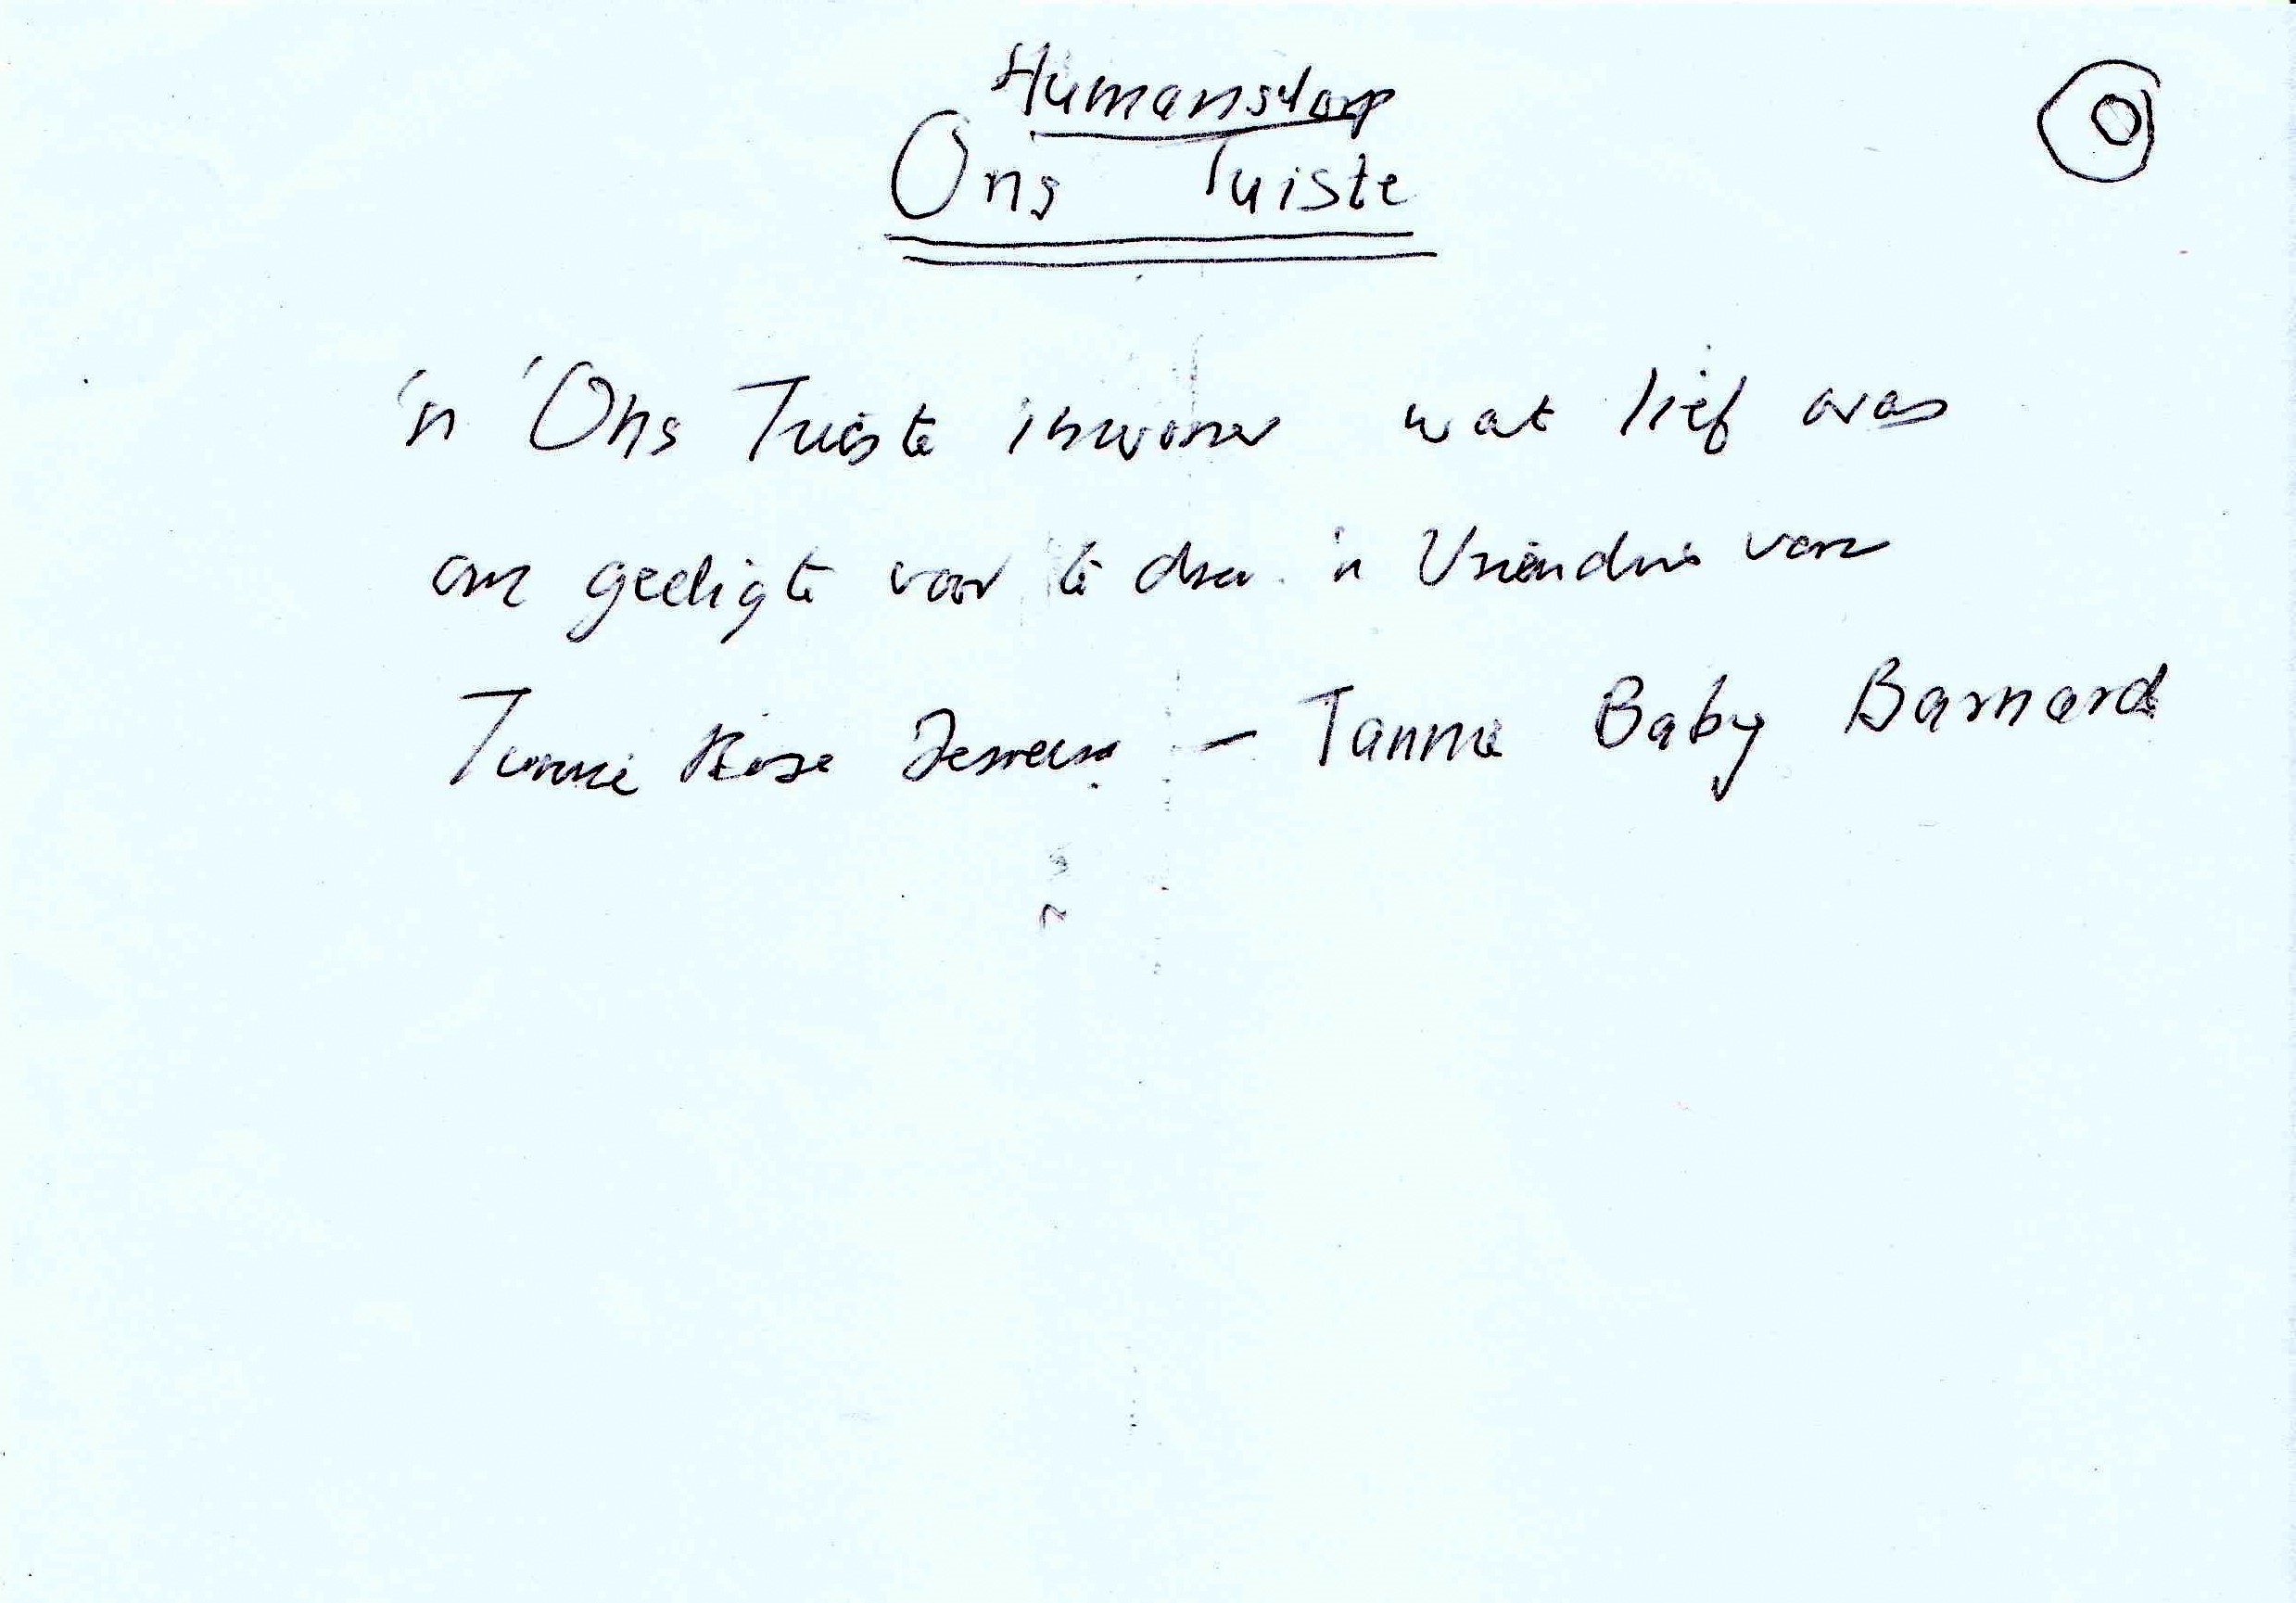 Humansdorp
O
Ons Tuiste
'n 'Ons Tuiste inwoner wat lief was
om gedigte voor te dra. 'n Vriendin van
Tannie Rose - Tannie Baby Barnard